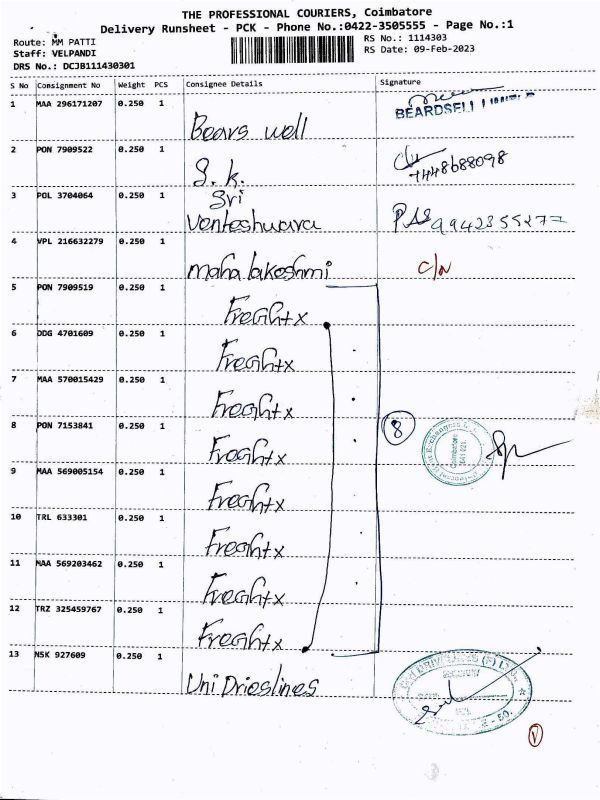 THE PROFESSIONAL COURIERS, Coimbatore
Delivery Runsheet - PCK - Phone No.:0422-3505555 - Page No.:1
Route: MM PATTI
RS No.: 1114303
Staff: VELPANDI
RS Date: 09-Feb-2023
DRS No.: DCJB111430301
S No Consignment No Weight PCS Consignee Details Signature
1 MAA 296171207 0.250 1 Bears well BEARDSELL LIMITED
2 PON 7909522 0.250 1 S.K. 7448688098
3 POL 3704064 0.250 1 Sri
Venteshwara 9942355277
4 VPL 216632279 0.250 1 maha lakeshmi c/n
5 PON 7909519 0.250 1 Freghtx
6 DDG 4701609 0.250 1 Freghtx
7 MAA 570015429 0.250 1 Freghtx
8 PON 7153841 0.250 1 Freghtx 8
9 MAA 569005154 0.250 1 Freghtx
10 TRL 633301 0.250 1 Freghtx
11 MAA 569203462 0.250 1 Freghtx
12 TRZ 325459767 0.250 1 Freghtx
13 NSK 927609 0.250 1 Uni Drieslines